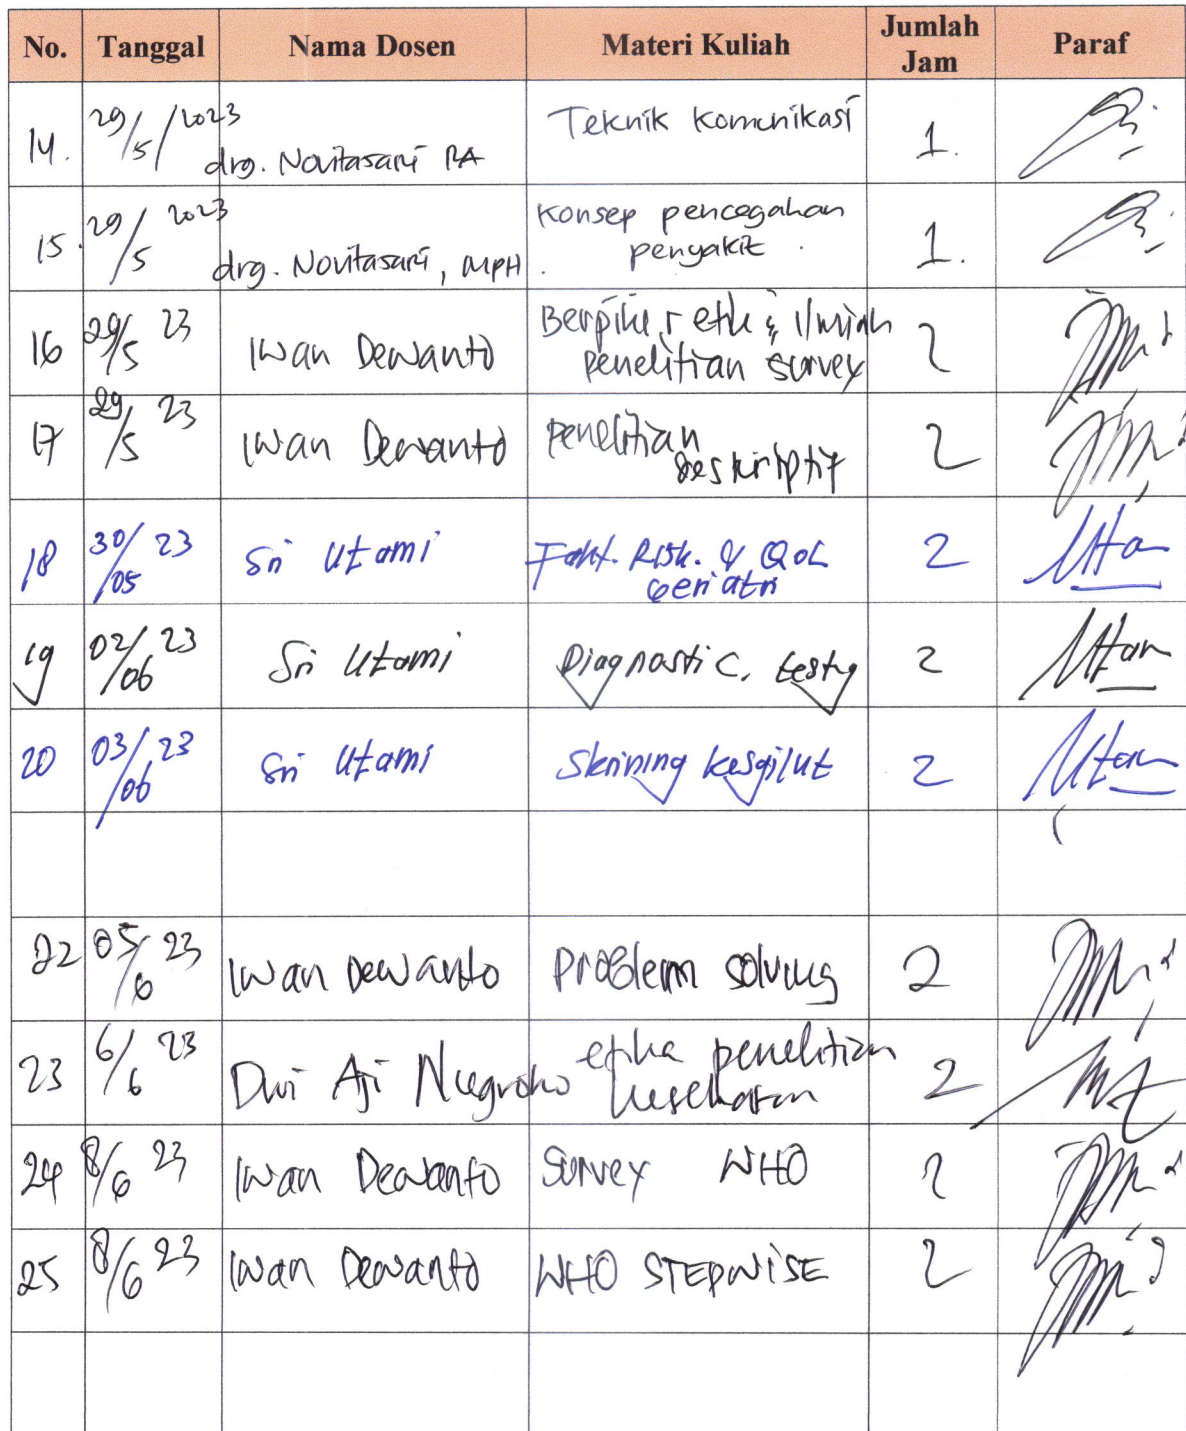 No. Tanggal Nama Dosen Materi Kuliah Jumlah Jam Paraf
14. 29/5/2023 drg. Novitasari RA Teknik Komunikasi 1.
15. 29/5 2023 drg. Novitasari, MPH. Konsep pencegahan penyakit. 1.
16 29/5 23 Iwan Dewanto Berpikir etik & ilmiah penelitian survey 2
17 29/5 23 Iwan Dewanto penelitian deskriptif 2
18 30/05 23 Sri Utami Fakt. Risk. & QoL Geriatri 2
19 02/06 23 Sri Utami Diagnostic. testg 2
20 03/06 23 Sri Utami Skrining kesgilut 2
22 05/6 23 Iwan Dewanto problem solving 2
23 6/6 23 Dwi Aji Nugroho etika penelitian kesehatan 2
24 8/6 23 Iwan Dewanto Survey WHO 2
25 8/6 23 Iwan Dewanto WHO STEPWISE 2